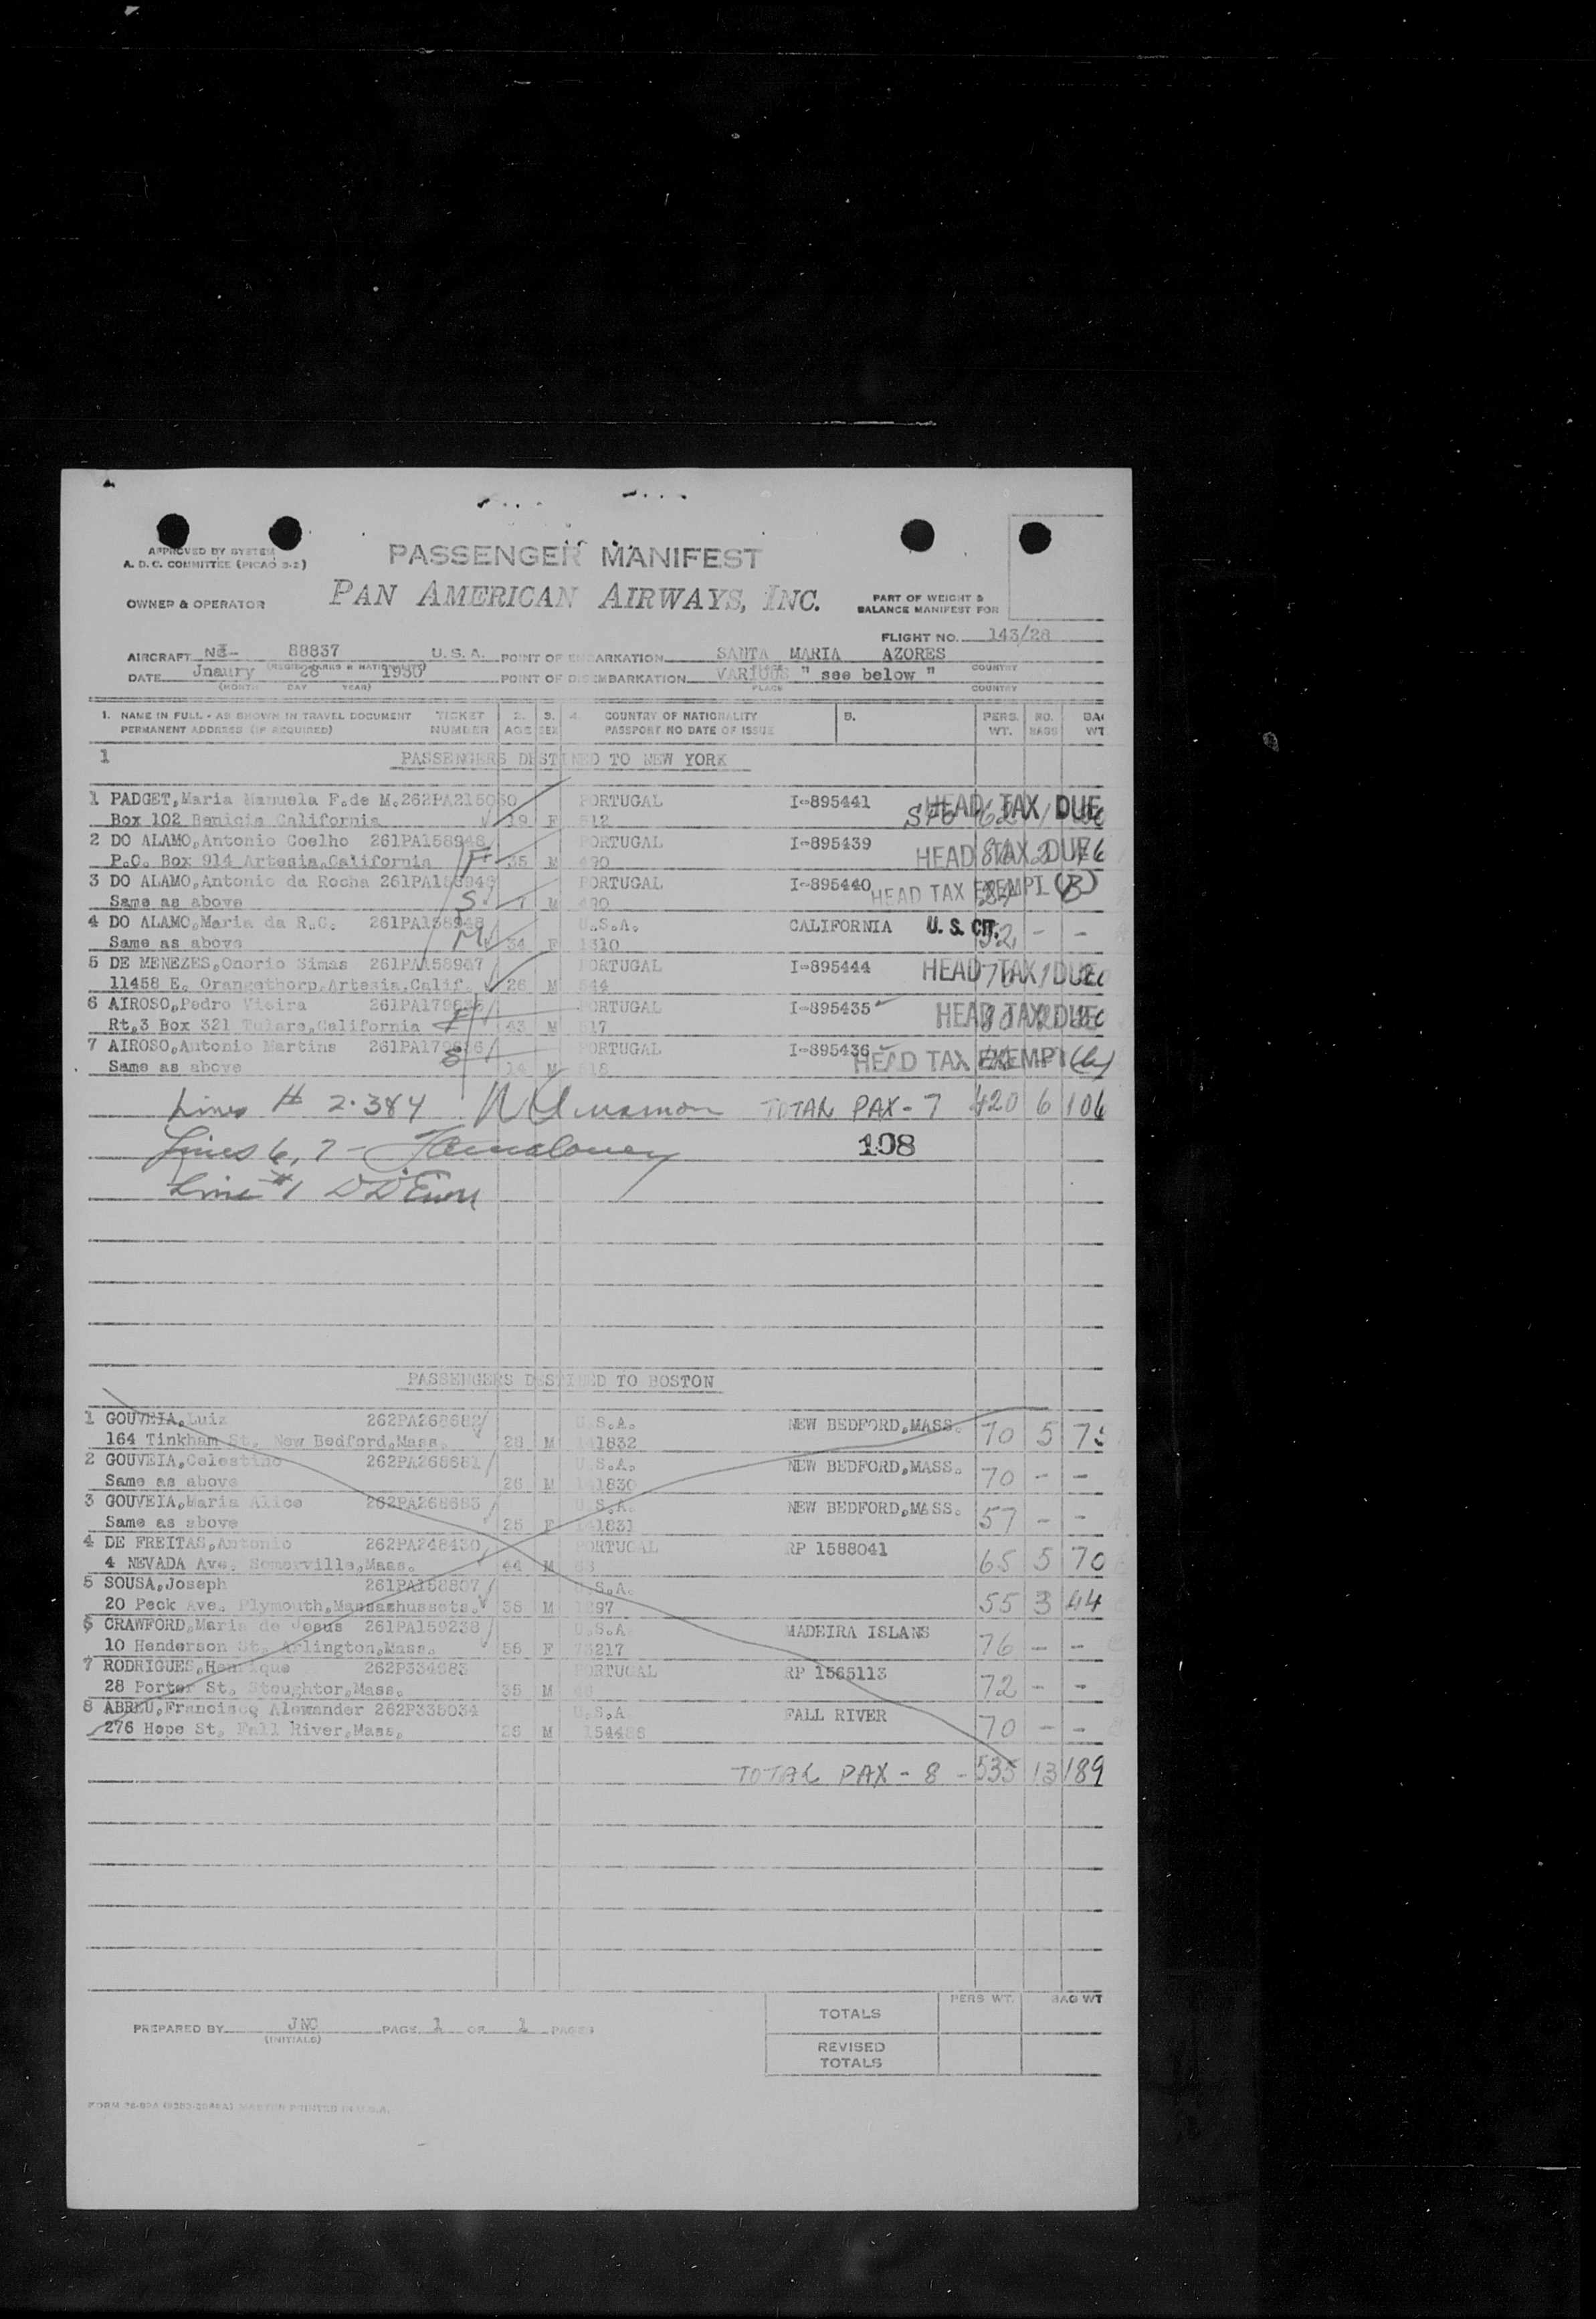 APPROVED BY SYSTEM
A. D. C. COMMITTEE (PICAO 9-2)
PASSENGER MANIFEST
OWNER & OPERATOR
PAN AMERICAN AIRWAYS, INC.
PART OF WEIGHT &
BALANCE MANIFEST FOR
FLIGHT NO. 143/28
AIRCRAFT 88837 U. S. A. POINT OF EMBARKATION SANTA MARIA AZORES
(REGISTRATION & NATIONALITY) COUNTRY
DATE Jnaury 28 1950 POINT OF DISEMBARKATION VARIOUS " see below "
(MONTH DAY YEAR) PLACE COUNTRY
1. NAME IN FULL - AS SHOWN IN TRAVEL DOCUMENT TICKET 2. 3. 4. COUNTRY OF NATIONALITY 5. PERS. NO. BAG
PERMANENT ADDRESS (IF REQUIRED) NUMBER AGE SEX PASSPORT NO DATE OF ISSUE WT. BAGS WT
1 PASSENGERS DESTINED TO NEW YORK
1 PADGET,Maria Manuela F.de M.262PA215030 PORTUGAL I-895441 HEAD TAX DUE
Box 102 Benicia California 19 F 512
2 DO ALAMO,Antonio Coelho 261PA158948 PORTUGAL I-895439
P.O. Box 914 Artesia,California F 35 M 490 HEAD TAX DUE
3 DO ALAMO,Antonio da Rocha 261PA158948 PORTUGAL I-895440
Same as above S 7 M 490 HEAD TAX EXEMPT (B)
4 DO ALAMO,Maria da R.C. 261PA158948 U.S.A. CALIFORNIA U. S. CIT. 52 - -
Same as above M 34 F 1310
5 DE MENEZES,Onorio Simas 261PA158967 PORTUGAL I-895444 HEAD TAX DUE
11458 E. Orangethorp,Artesia,Calif. 26 M 544
6 AIROSO,Pedro Vieira 261PA179636 PORTUGAL I-895435 HEAD TAX DUE
Rt.3 Box 321 Tulare,California F 43 M 517
7 AIROSO,Antonio Martins 261PA179636 PORTUGAL I-895436
Same as above S 14 M 518 HEAD TAX EXEMPT (b)
Lines # 2-3&4 TOTAL PAX - 7 420 6 106
Lines 6, 7 - 108
Line #1
PASSENGERS DESTINED TO BOSTON
1 GOUVEIA,Luiz 262PA268682 U.S.A. NEW BEDFORD,MASS. 70 5 75
164 Tinkham St. New Bedford,Mass. 28 M 141832
2 GOUVEIA,Celestino 262PA268681 U.S.A. NEW BEDFORD,MASS. 70 - -
Same as above 26 M 141830
3 GOUVEIA,Maria Alice 262PA268683 U.S.A. NEW BEDFORD,MASS. 57 - -
Same as above 25 F 141831
4 DE FREITAS,Antonio 262PA248430 PORTUGAL RP 1588041 65 5 70
4 NEVADA Ave. Somerville,Mass. 44 M 68
5 SOUSA,Joseph 261PA158807 U.S.A. 55 3 44
20 Peck Ave. Plymouth,Massachussets. 38 M 1297
6 CRAWFORD,Maria de Jesus 261PA159238 U.S.A MADEIRA ISLANS 76 - -
10 Henderson St. Arlington,Mass. 56 F 73217
7 RODRIGUES,Henrique 262P334683 PORTUGAL RP 1565113 72 - -
28 Porter St. Stoughtor,Mass. 35 M 46
8 ABREU,Francisco Alexander 262P335034 U.S.A FALL RIVER 70 - -
276 Hope St. Fall River,Mass. 26 M 154486
TOTAL PAX - 8 - 535 13 189
PERS WT. BAG WT
TOTALS
PREPARED BY JNC PAGE 1 OF 1 PAGES
(INITIALS)
REVISED
TOTALS